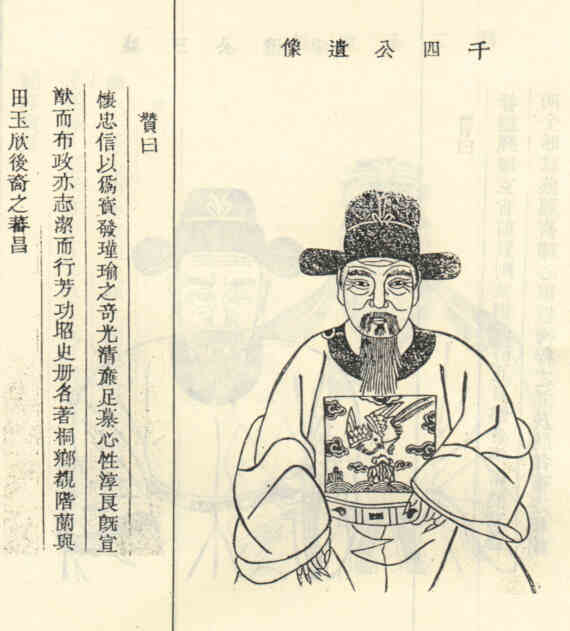 千四公遺像
贊曰
懷忠信以爲寳發瑾瑜之奇光清亷足慕心性淳良旣宜
猷而布政亦志潔而行芳功昭史册名著桐鄉覩階蘭與
田玉欣後裔之蕃昌